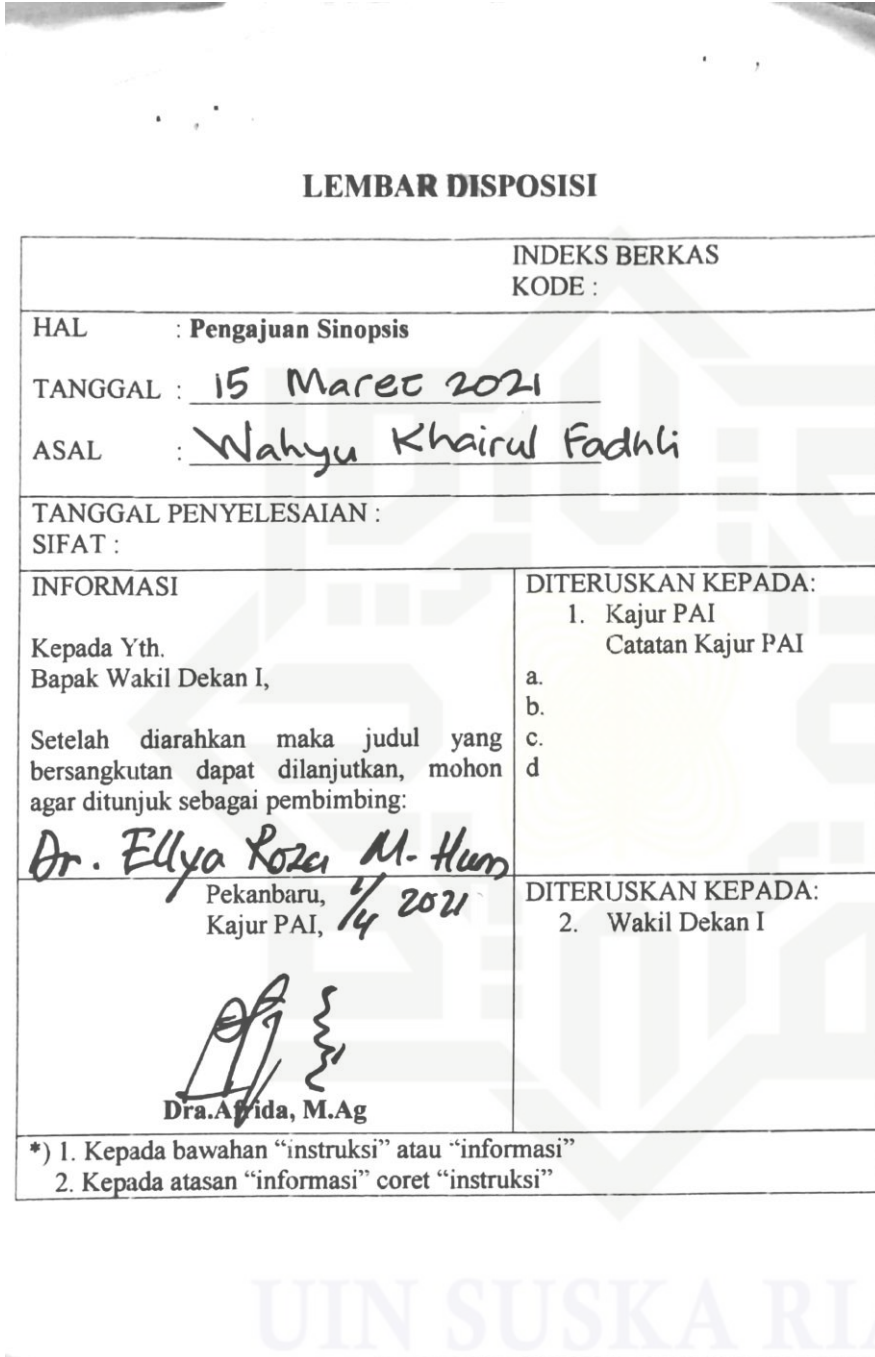 LEMBAR DISPOSISI
INDEKS BERKAS
KODE :
HAL : Pengajuan Sinopsis
TANGGAL : 15 Maret 2021
ASAL : Wahyu Khairul Fadhli
TANGGAL PENYELESAIAN :
SIFAT :
INFORMASI
Kepada Yth.
Bapak Wakil Dekan I,
Setelah diarahkan maka judul yang
bersangkutan dapat dilanjutkan, mohon
agar ditunjuk sebagai pembimbing:
Dr. Ellya Roza M. Hum
Pekanbaru, 1/4 2021
Kajur PAI,
Dra.Afrida, M.Ag
DITERUSKAN KEPADA:
1. Kajur PAI
Catatan Kajur PAI
a.
b.
c.
d
DITERUSKAN KEPADA:
2. Wakil Dekan I
*) 1. Kepada bawahan “instruksi” atau “informasi”
2. Kepada atasan “informasi” coret “instruksi”
UIN SUSKA RIA